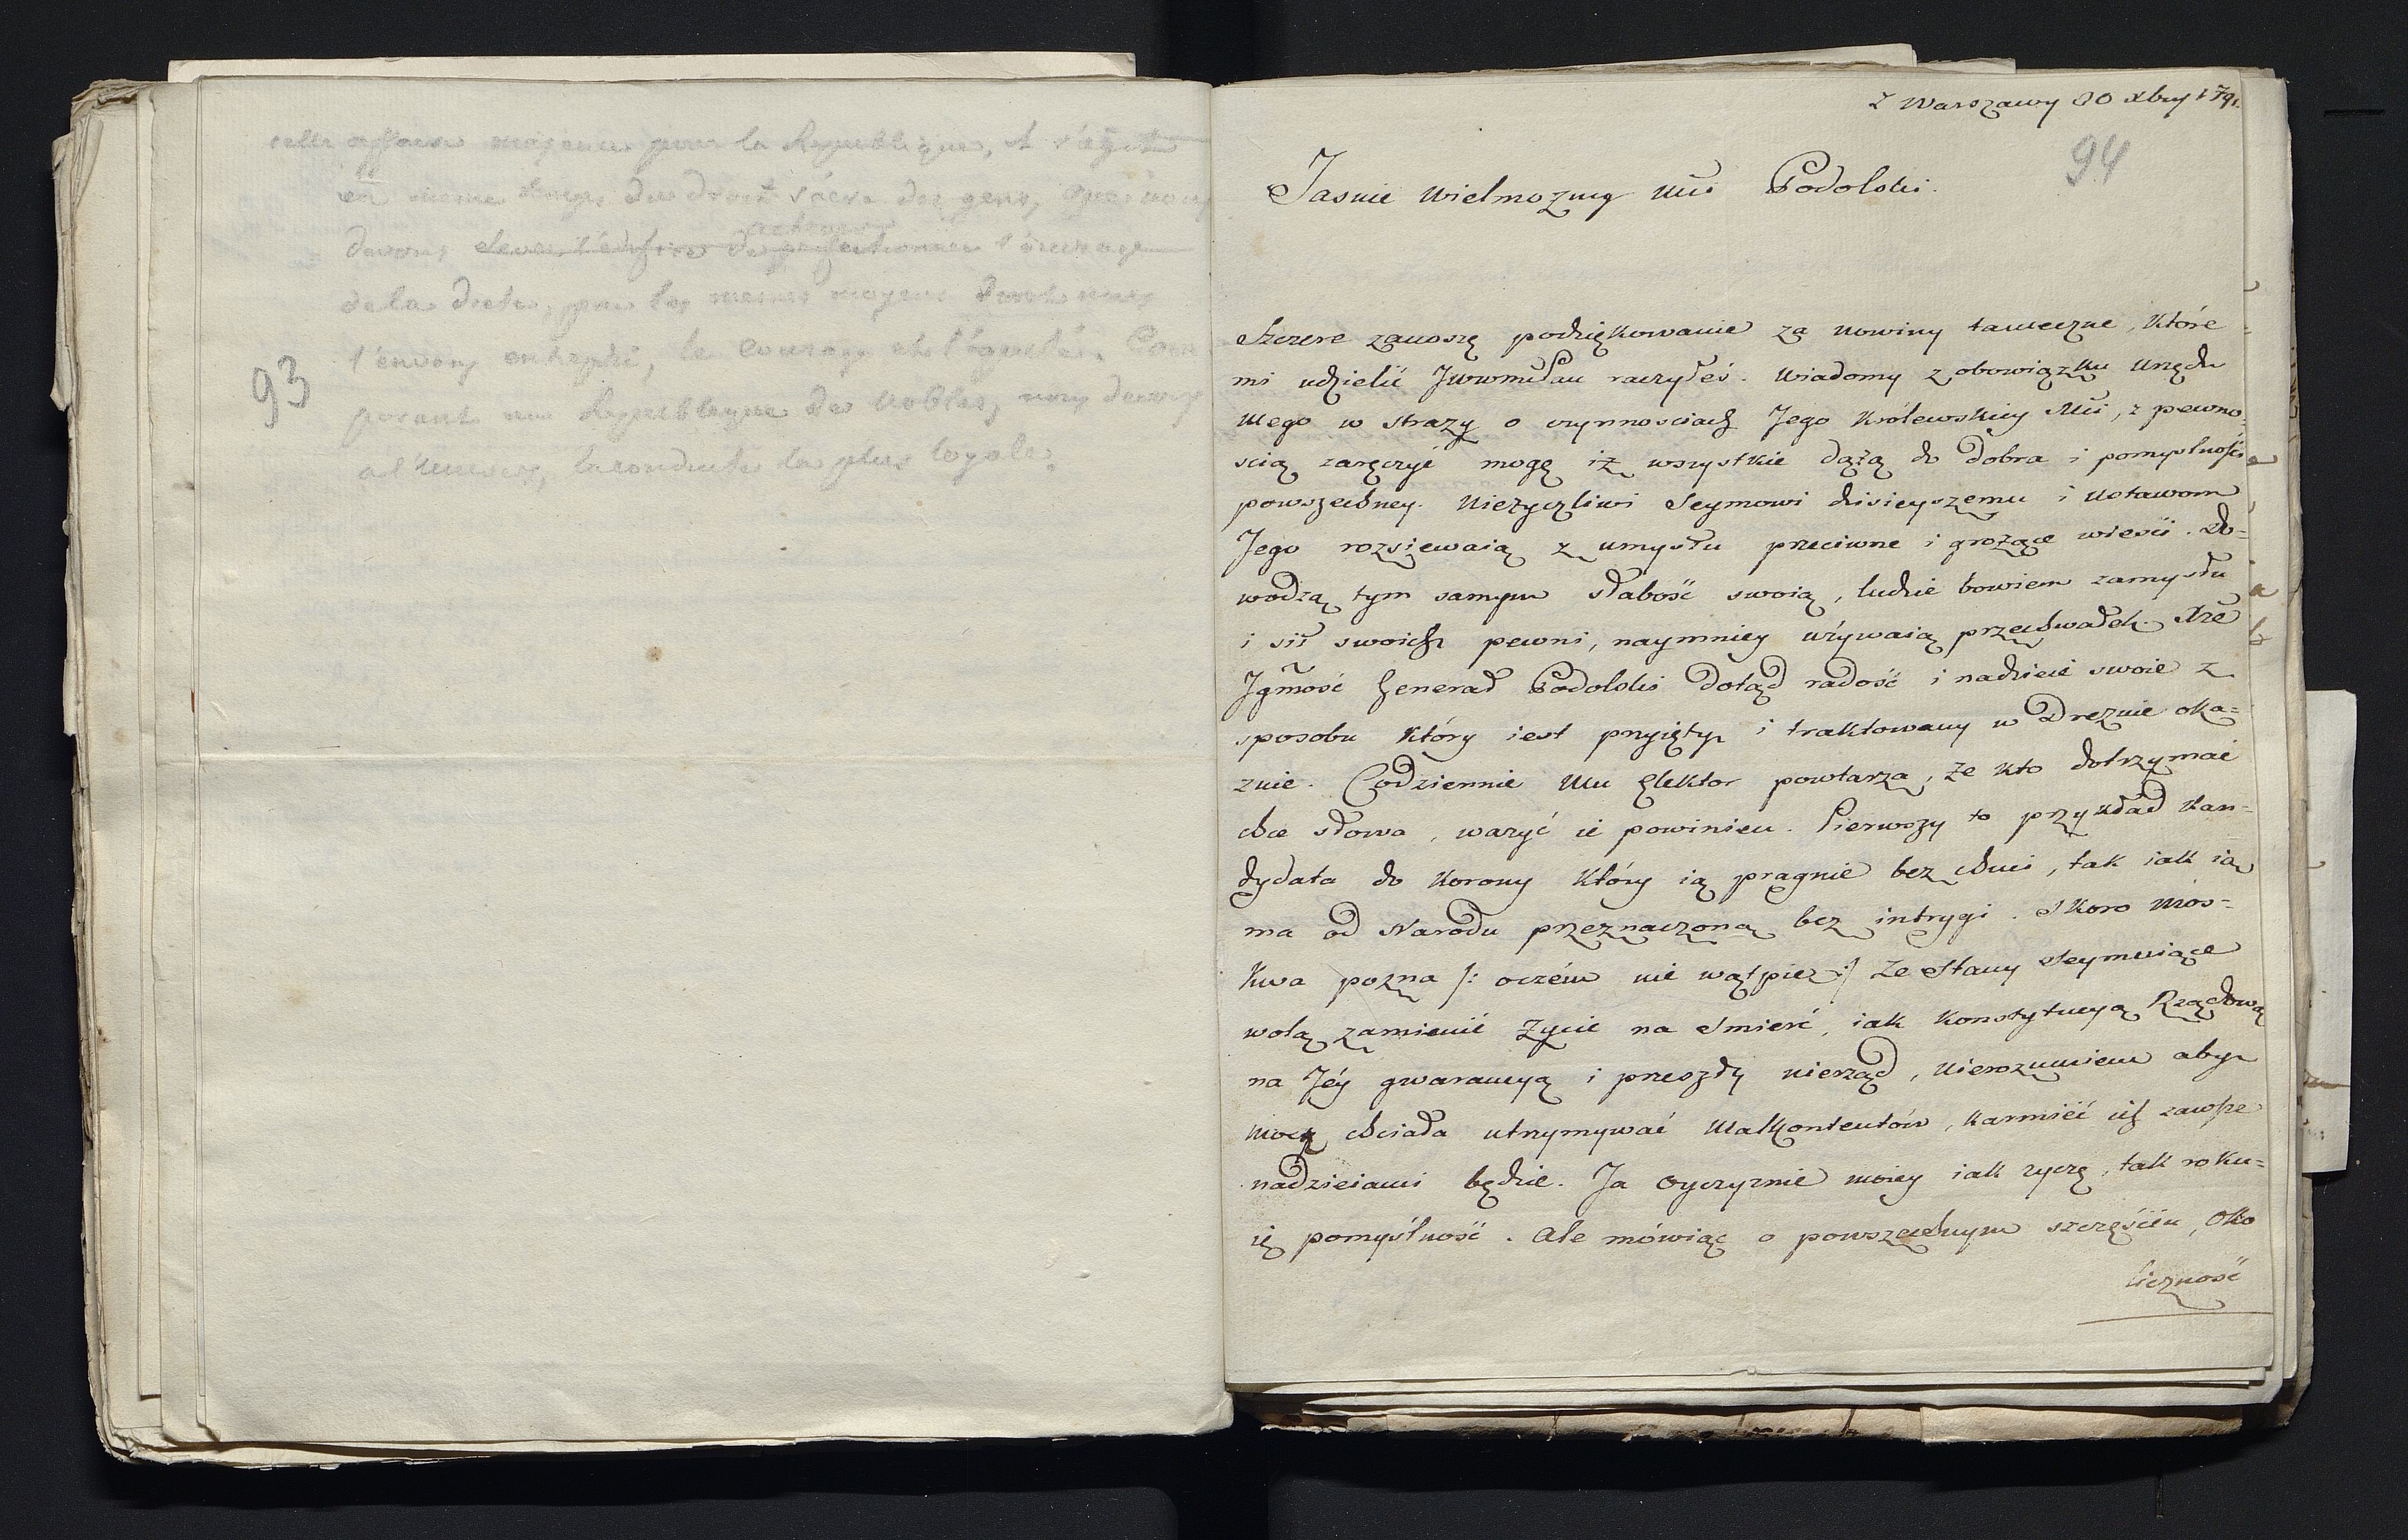 cette affaire majeure pour la Republique, et s'agit
en meme temps du droit sacré des gens, que nous
achever
devons elever l'édifice de perfectionner l'ouvrage
de la diete, par les memes moyens dont nous
l'avons entrepris, le courage et l'équité.
93
une Republique de Nobles, nous devons
a l'univers, la conduite la plus loyale.
Z Warszawy 30 Xbry 1791
94
Jasnie Wielmozny Mci Podolski.
Szczere zanoszę podziękowanie za nowiny tameczne, które
mi udzielić JWWmPan raczyłeś. Wiadomy z obowiązku Urzędu
mego w straży o czynnosciach Jego Królewskiey Mci, z pewno=
scią zaręczyć mogę iż wszystkie dążą do dobra i pomyslności
powszechney. Nieżyczliwi Seymowi dzisieyszemu i ustawom
Jego rozsiewaią z umysłu przeciwne i grożące wieści. Do=
wodzą tym samym słabość swoią, ludzie bowiem zamysłu
i sił swoich pewni, naymniey używaią przechwałek. Xże
Jgmość Generał Podolski dotąd radość i nadzieie swoie z
sposobu który iest przyięty i traktowany w Dreznie oka=
zuie. Codziennie Mu Elektor powtarza, że kto dotrzymać
chce słowa, ważyć ie powinien. Pierwszy to przykład kan=
dydata do korony który ią pragnie bez chuci, tak iak ią
ma od Narodu przeznaczoną bez intrygi. Skoro Mos=
kwa pozna /: oczém nie wątpię :/ że Stany Seymuiące
wolą zamienić życie na śmierć, iak Konstytucyą Rządową
na Jéy gwarancyą i przeszły nierząd, nierozumiem aby
mocą chciała utrzymywać Malkontentów, karmić ich zawsze
nadzieiami będzie. Ja oyczyznie moiey iak życzę, tak roku=
ię pomyślność. Ale mówiąc o powszechnym szczęściu, Oko
liczność